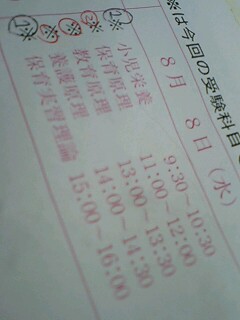 ※は今回の受験科目
8月 8日 (水)
※ 小児栄養 9:30～10:30
※ 保育原理 11:00～12:00
※ 教育原理 13:00～13:30
※ 養護原理 14:00～14:30
※ 保育実習理論 15:00～16:00